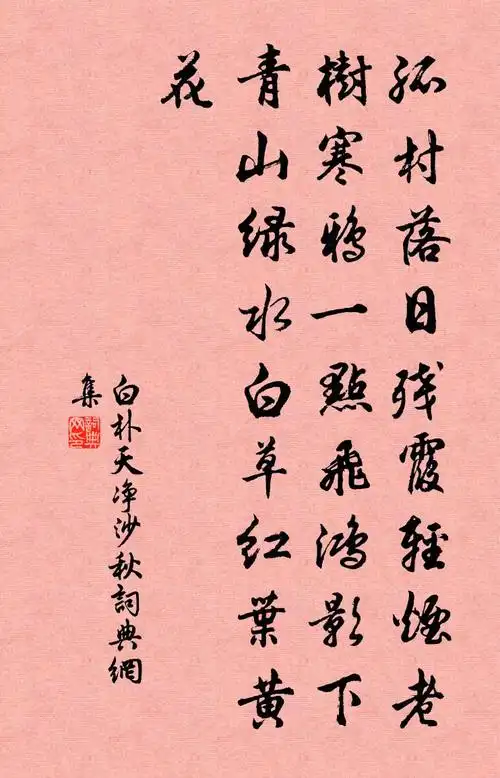 孤村落日残霞轻烟老
樹寒鸦一點飛鴻影下
青山绿水白草红葉黄
花
白朴天净沙秋詞典網
集
詞典
网印